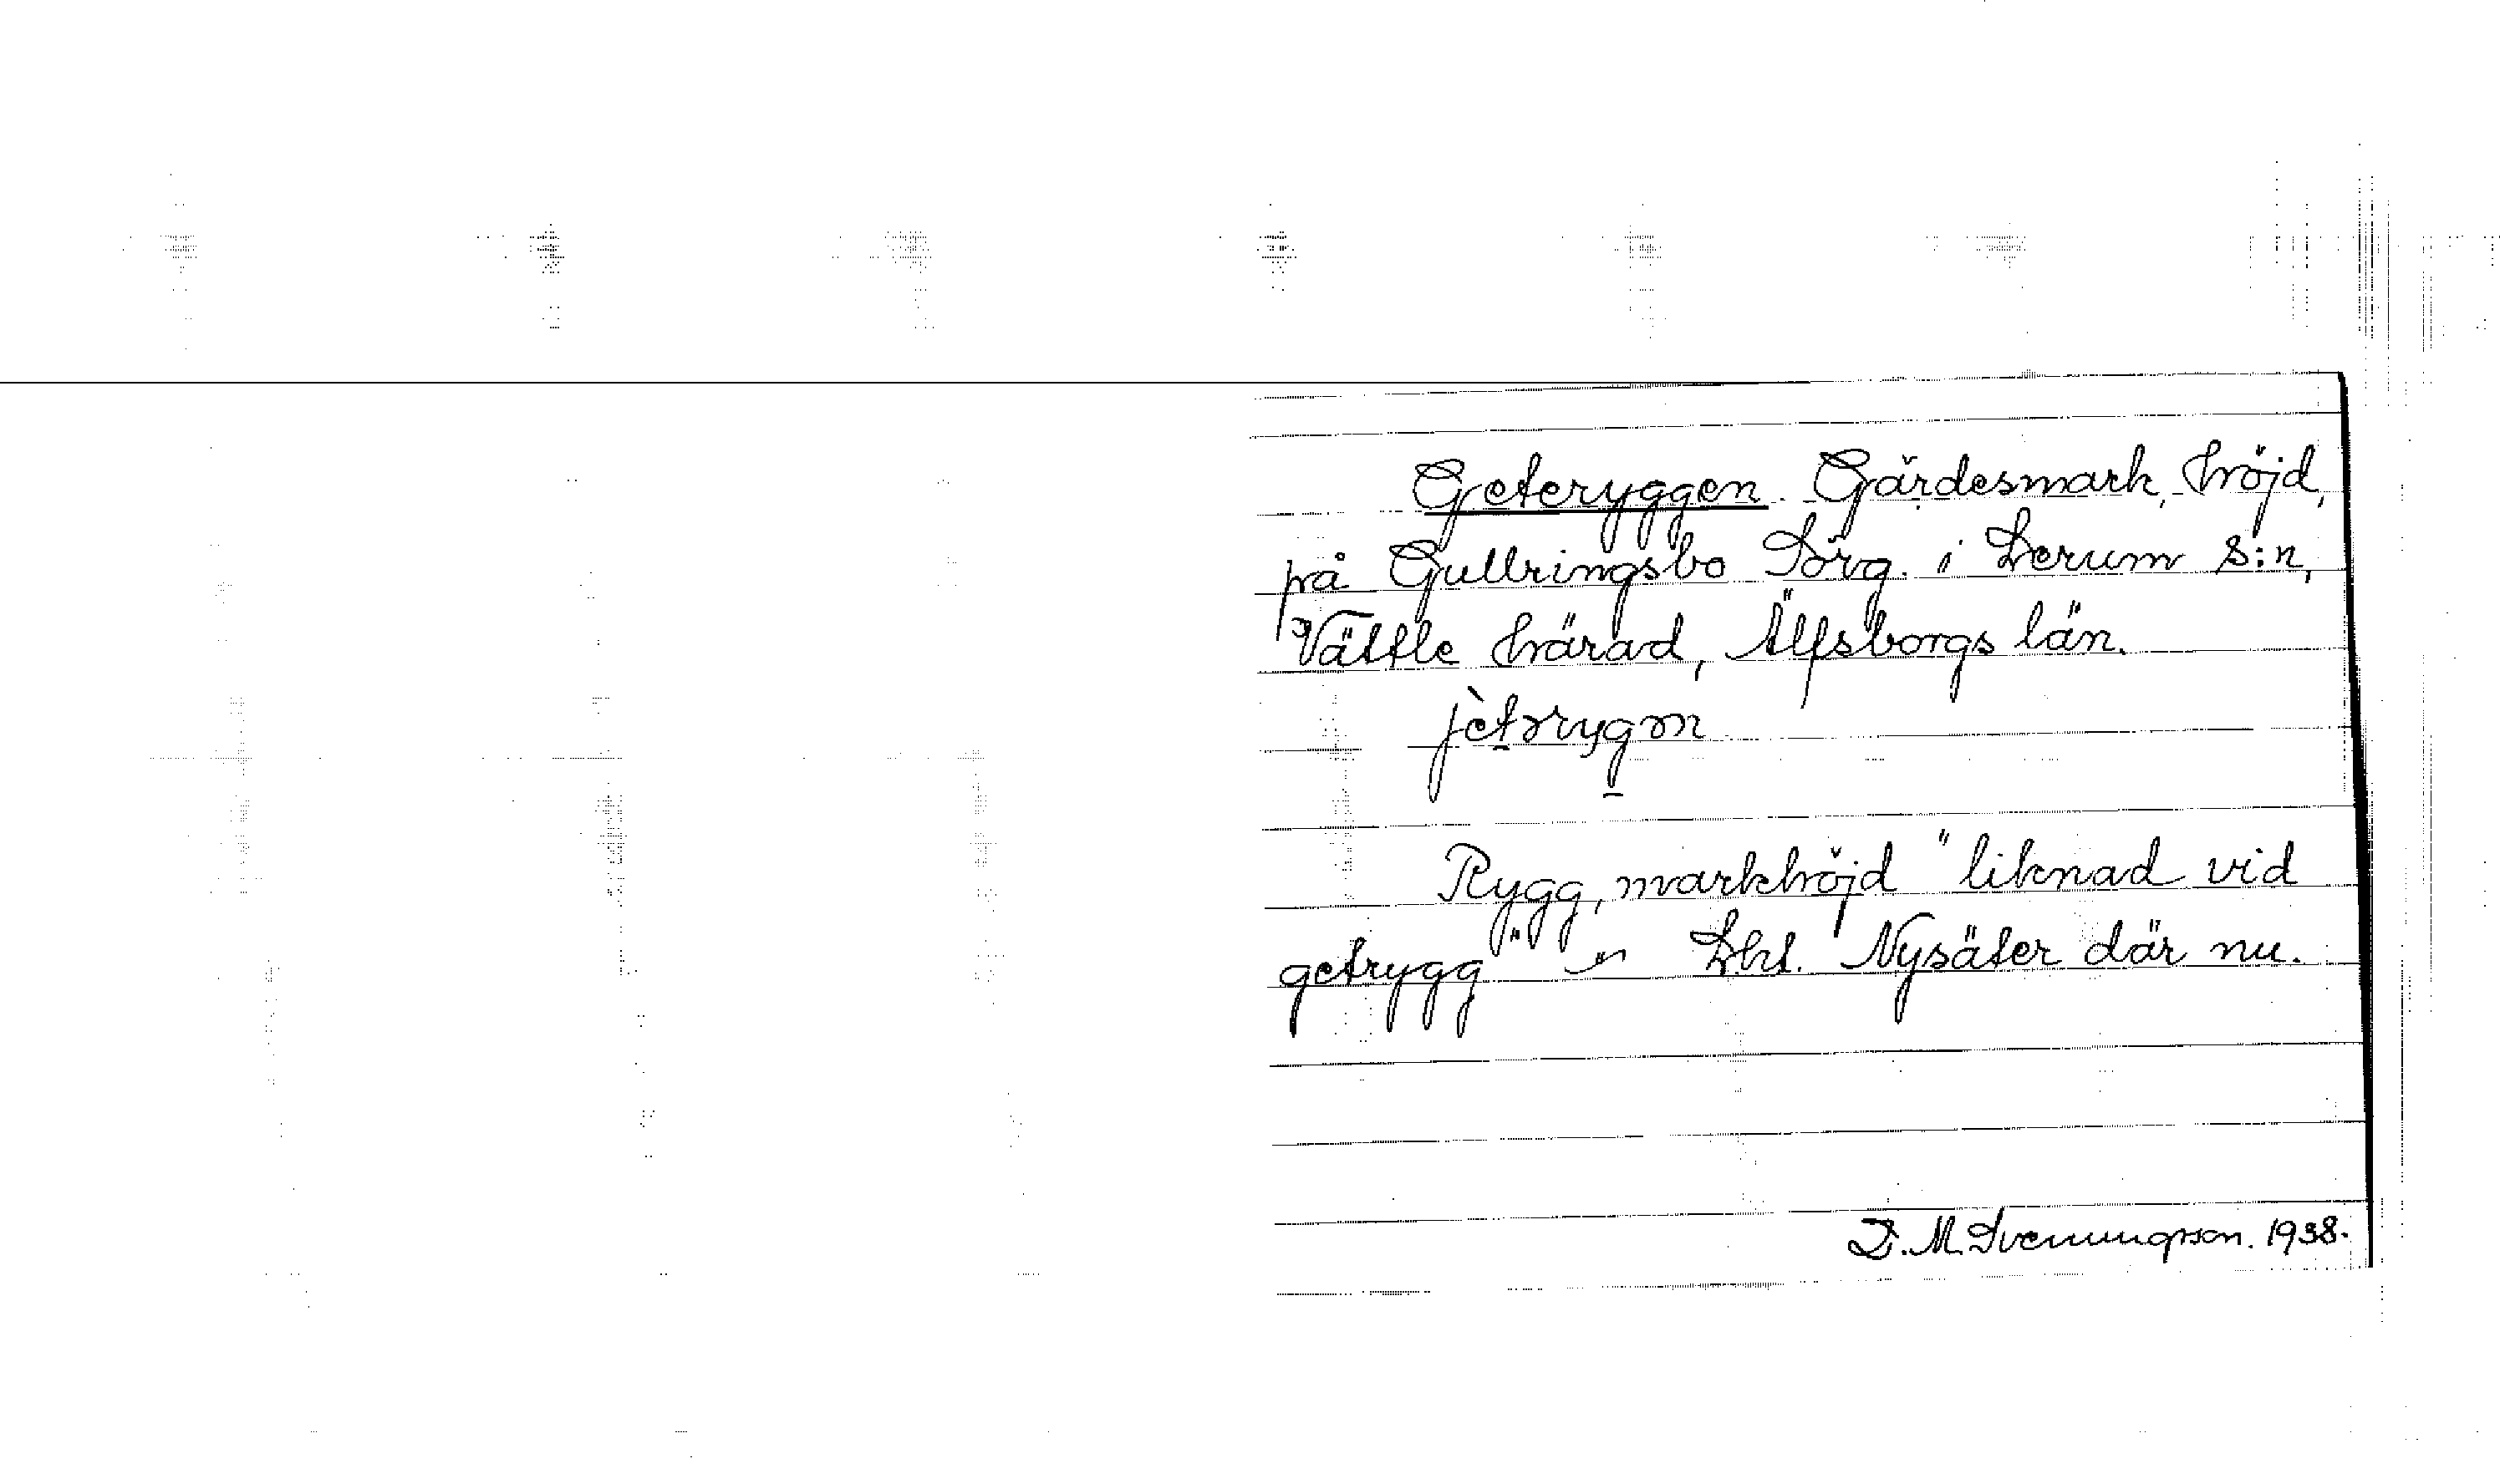 Geteryggen. Gärdesmark, höjd,
på Gullringsbo Sörg. i Lerum s:n,
Vättle härad, Älfsborgs län.
jètrygm
Rygg, markhöjd "liknad vid
getrygg" Lht. Nysäter där nu.
D. M. Svenungsson. 1938.